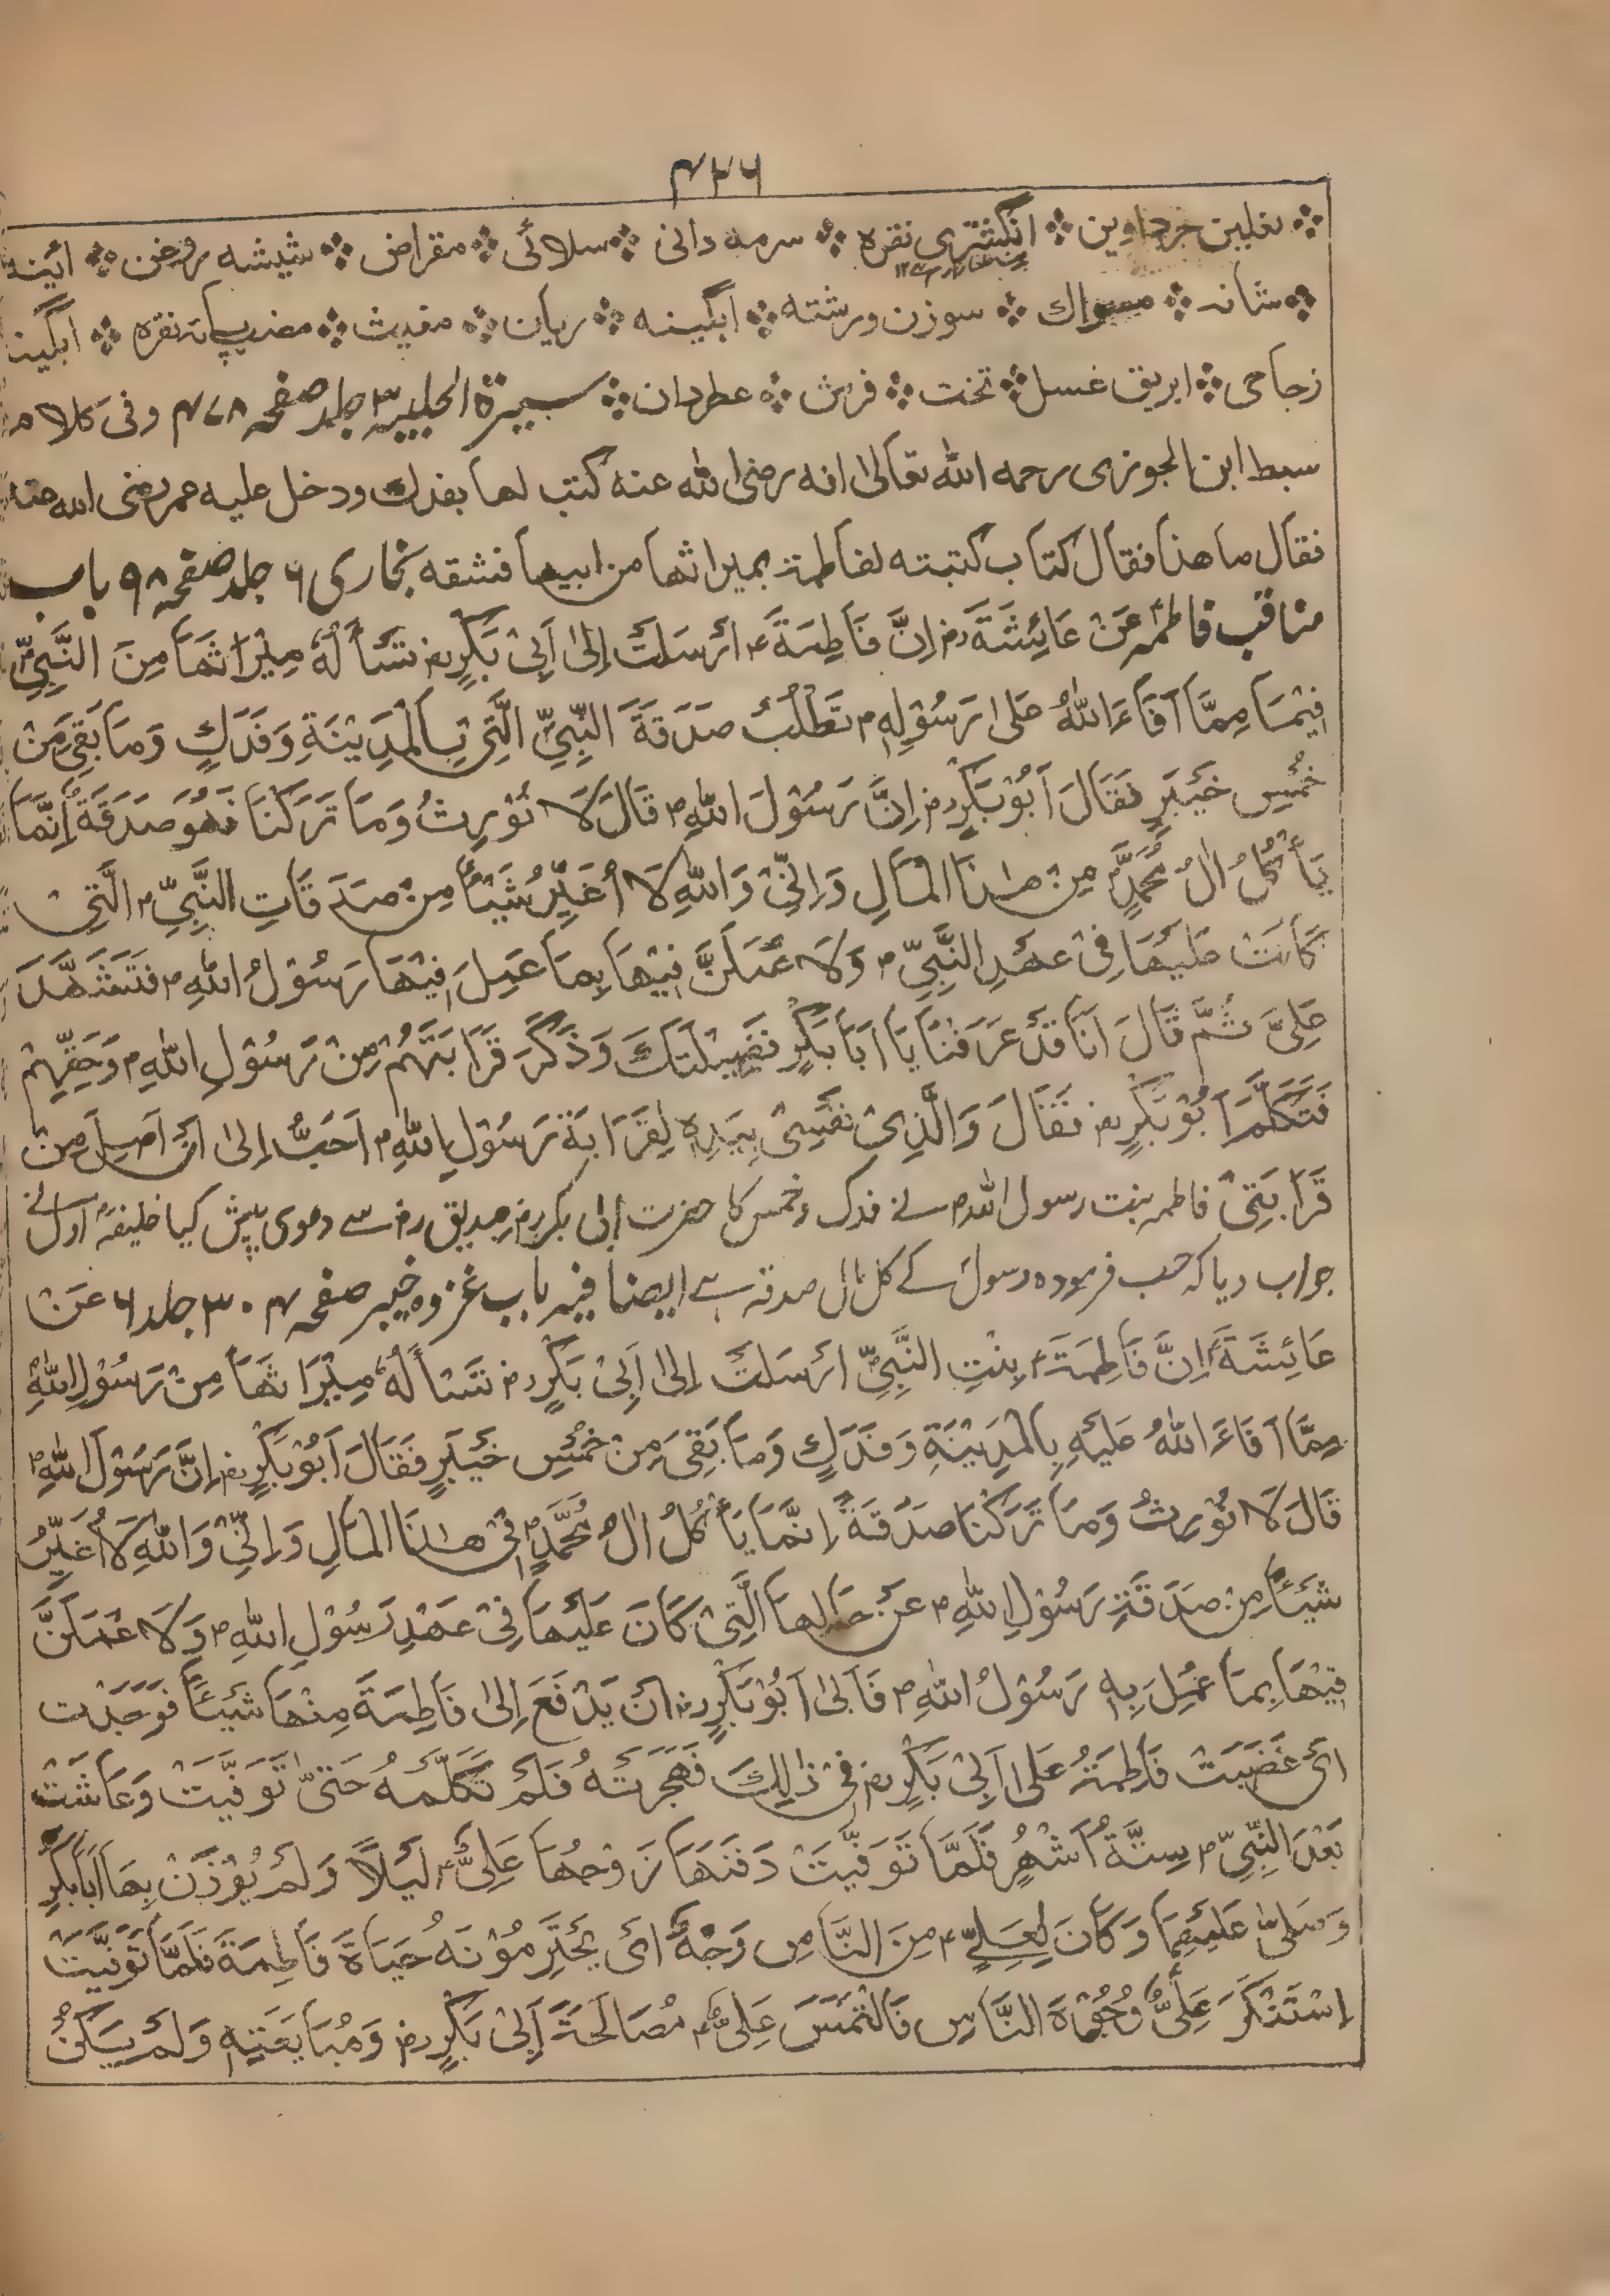 ۴۳۶
نعلین جرداوین ⁘ انگشتری نقره ⁘ سرمه دانی ⁘ سلائی ⁘ مقراض ⁘ شیشه روغن ⁘ ائینه
⁘ شانه ⁘ مسواك ⁘ سوزن ورشته ⁘ ابگینه ⁘ ریان ⁘ مغیث ⁘ مضبب نقره ⁘ ابگینه
زجاجی ⁘ ابریق غسل ⁘ تخت ⁘ فرش ⁘ عطردان ⁘ سیرة الحلبیه ۳ جلد صفحه ۴۷۸ وفی کلام
سبط ابن الجوزی رحمه الله تعالیٰ انه رضی الله عنه کتب لها بفدك ودخل علیه عمر رضی الله عنه
فقال ما هذا فقال کتاب کتبته لفاطمة بمیراثها من ابیها فشقه بخاری ۶ جلد صفحه ۹۸ باب
مناقب فاطمه عَنْ عَائِشَةَ رض اِنَّ فَاطِمَةَ ع اَرْسَلَتْ اِلیٰ اَبِیْ بَکْرٍ رض تَسْأَلُهٗ مِیْرَاثَهَا مِنَ النَّبِیِّ
فِیْمَا مِمَّا اَفَاءَ اللّٰهُ عَلیٰ رَسُوْلِهٖ م تَطْلُبُ صَدَقَةَ النَّبِیِّ الَّتِیْ بِالْمَدِیْنَةِ وَفَدَكٍ وَمَا بَقِیَ مِنْ
خُمُسِ خَیْبَرٍ فَقَالَ اَبُوْبَکْرٍ رض اِنَّ رَسُوْلَ اللّٰهِ م قَالَ لَا نُوْرِثُ وَمَا تَرَکْنَا فَهُوَ صَدَقَةٌ اِنَّمَا
یَأْکُلُ اٰلُ مُحَمَّدٍ مِنْ هٰذَا الْمَالِ وَاِنِّیْ وَاللّٰهِ لَا اُغَیِّرُ شَیْئًا مِنْ صَدَقَاتِ النَّبِیِّ م الَّتِیْ
کَانَتْ عَلَیْهَا فِیْ عَهْدِ النَّبِیِّ م وَلَاَعْمَلَنَّ فِیْهَا بِمَا عَمِلَ فِیْهَا رَسُوْلُ اللّٰهِ م فَتَشَهَّدَ
عَلِیٌّ ثُمَّ قَالَ اَنَا قَدْ عَرَفْنَا یَا اَبَا بَکْرٍ فَضِیْلَتَكَ وَذَکَرَ قَرَابَتَهُمْ مِنْ رَسُوْلِ اللّٰهِ م وَحَقِّهِمْ
فَتَکَلَّمَ اَبُوْبَکْرٍ رض فَقَالَ وَالَّذِیْ نَفْسِیْ بِیَدِهٖ لِقَرَابَةَ رَسُوْلِ اللّٰهِ م اَحَبُّ اِلیٰ اَنْ اَصِلَ مِنْ
قَرَابَتِیْ فاطمہ بنت رسول اللہ م نے فدک وخمس کا حضرت ابی بکر رض صدیق رض سے دعوی پیش کیا خلیفہ اول نے
جواب دیا کہ حسب فرمودہ رسول کے کل مال صدقہ ہے ایضا فیہ باب غزوہ خیبر صفحہ ۳۰۴ جلد ۶ عَنْ
عَائِشَةَ اِنَّ فَاطِمَةَ ع بِنْتِ النَّبِیِّ اَرْسَلَتْ اِلیٰ اَبِیْ بَکْرٍ رض تَسْاَلُهٗ مِیْرَاثَهَا مِنْ رَسُوْلِ اللّٰهِ
مِمَّا اَفَاءَ اللّٰهُ عَلَیْهِ بِالْمَدِیْنَةِ وَفَدَكٍ وَمَا بَقِیَ مِنْ خُمُسِ خَیْبَرٍ فَقَالَ اَبُوْبَکْرٍ رض اِنَّ رَسُوْلَ اللّٰهِ م
قَالَ لَا نُوْرِثُ وَمَا تَرَکْنَا صَدَقَةً اِنَّمَا یَأْکُلُ اٰلُ مُحَمَّدٍ م فِیْ هٰذَا الْمَالِ وَاِنِّیْ وَاللّٰهِ لَا اُغَیِّرُ
شَیْئًا مِنْ صَدَقَةِ رَسُوْلِ اللّٰهِ م عَنْ حَالِهَا الَّتِیْ کَانَ عَلَیْهَا فِیْ عَهْدِ رَسُوْلِ اللّٰهِ م وَلَاَعْمَلَنَّ
فِیْهَا بِمَا عَمِلَ بِهٖ رَسُوْلُ اللّٰهِ م فَاَبیٰ اَبُوْبَکْرٍ رض اَنْ یَدْفَعَ اِلیٰ فَاطِمَةَ مِنْهَا شَیْئًا فَوَجَدَت
اَیْ غَضِبَتْ فَاطِمَةُ عَلیٰ اَبِیْ بَکْرٍ رض فِیْ ذَالِكَ فَهَجَرَتْهُ فَلَمْ تَکَلَّمْهُ حَتّٰی تُوَفِّیَتْ وَعَاشَتْ
بَعْدَ النَّبِیِّ م سِتَّةَ اَشْهُرٍ فَلَمَّا تُوَفِّیَتْ دَفَنَهَا زَوْجُهَا عَلِیٌّ ع لَیْلًا وَلَمْ یُؤْذَنْ بِهَا اَبَابَکْرٍ
وَصَلیّٰ عَلَیْهَا وَکَانَ لِعَلِیٍّ ع مِنَ النَّاسِ وَجْهٌ اَیْ یَحْتَرِمُوْنَهُ حَیَاةَ فَاطِمَةَ فَلَمَّا تُوُفِّیَتْ
اِسْتَنْکَرَ عَلِیٌّ وُجُوْهَ النَّاسِ فَالْتَمَسَ عَلِیٌّ ع مُصَالَحَةَ اَبِیْ بَکْرٍ رض وَمُبَایَعَتِهٖ وَلَمْ یَکُنْ